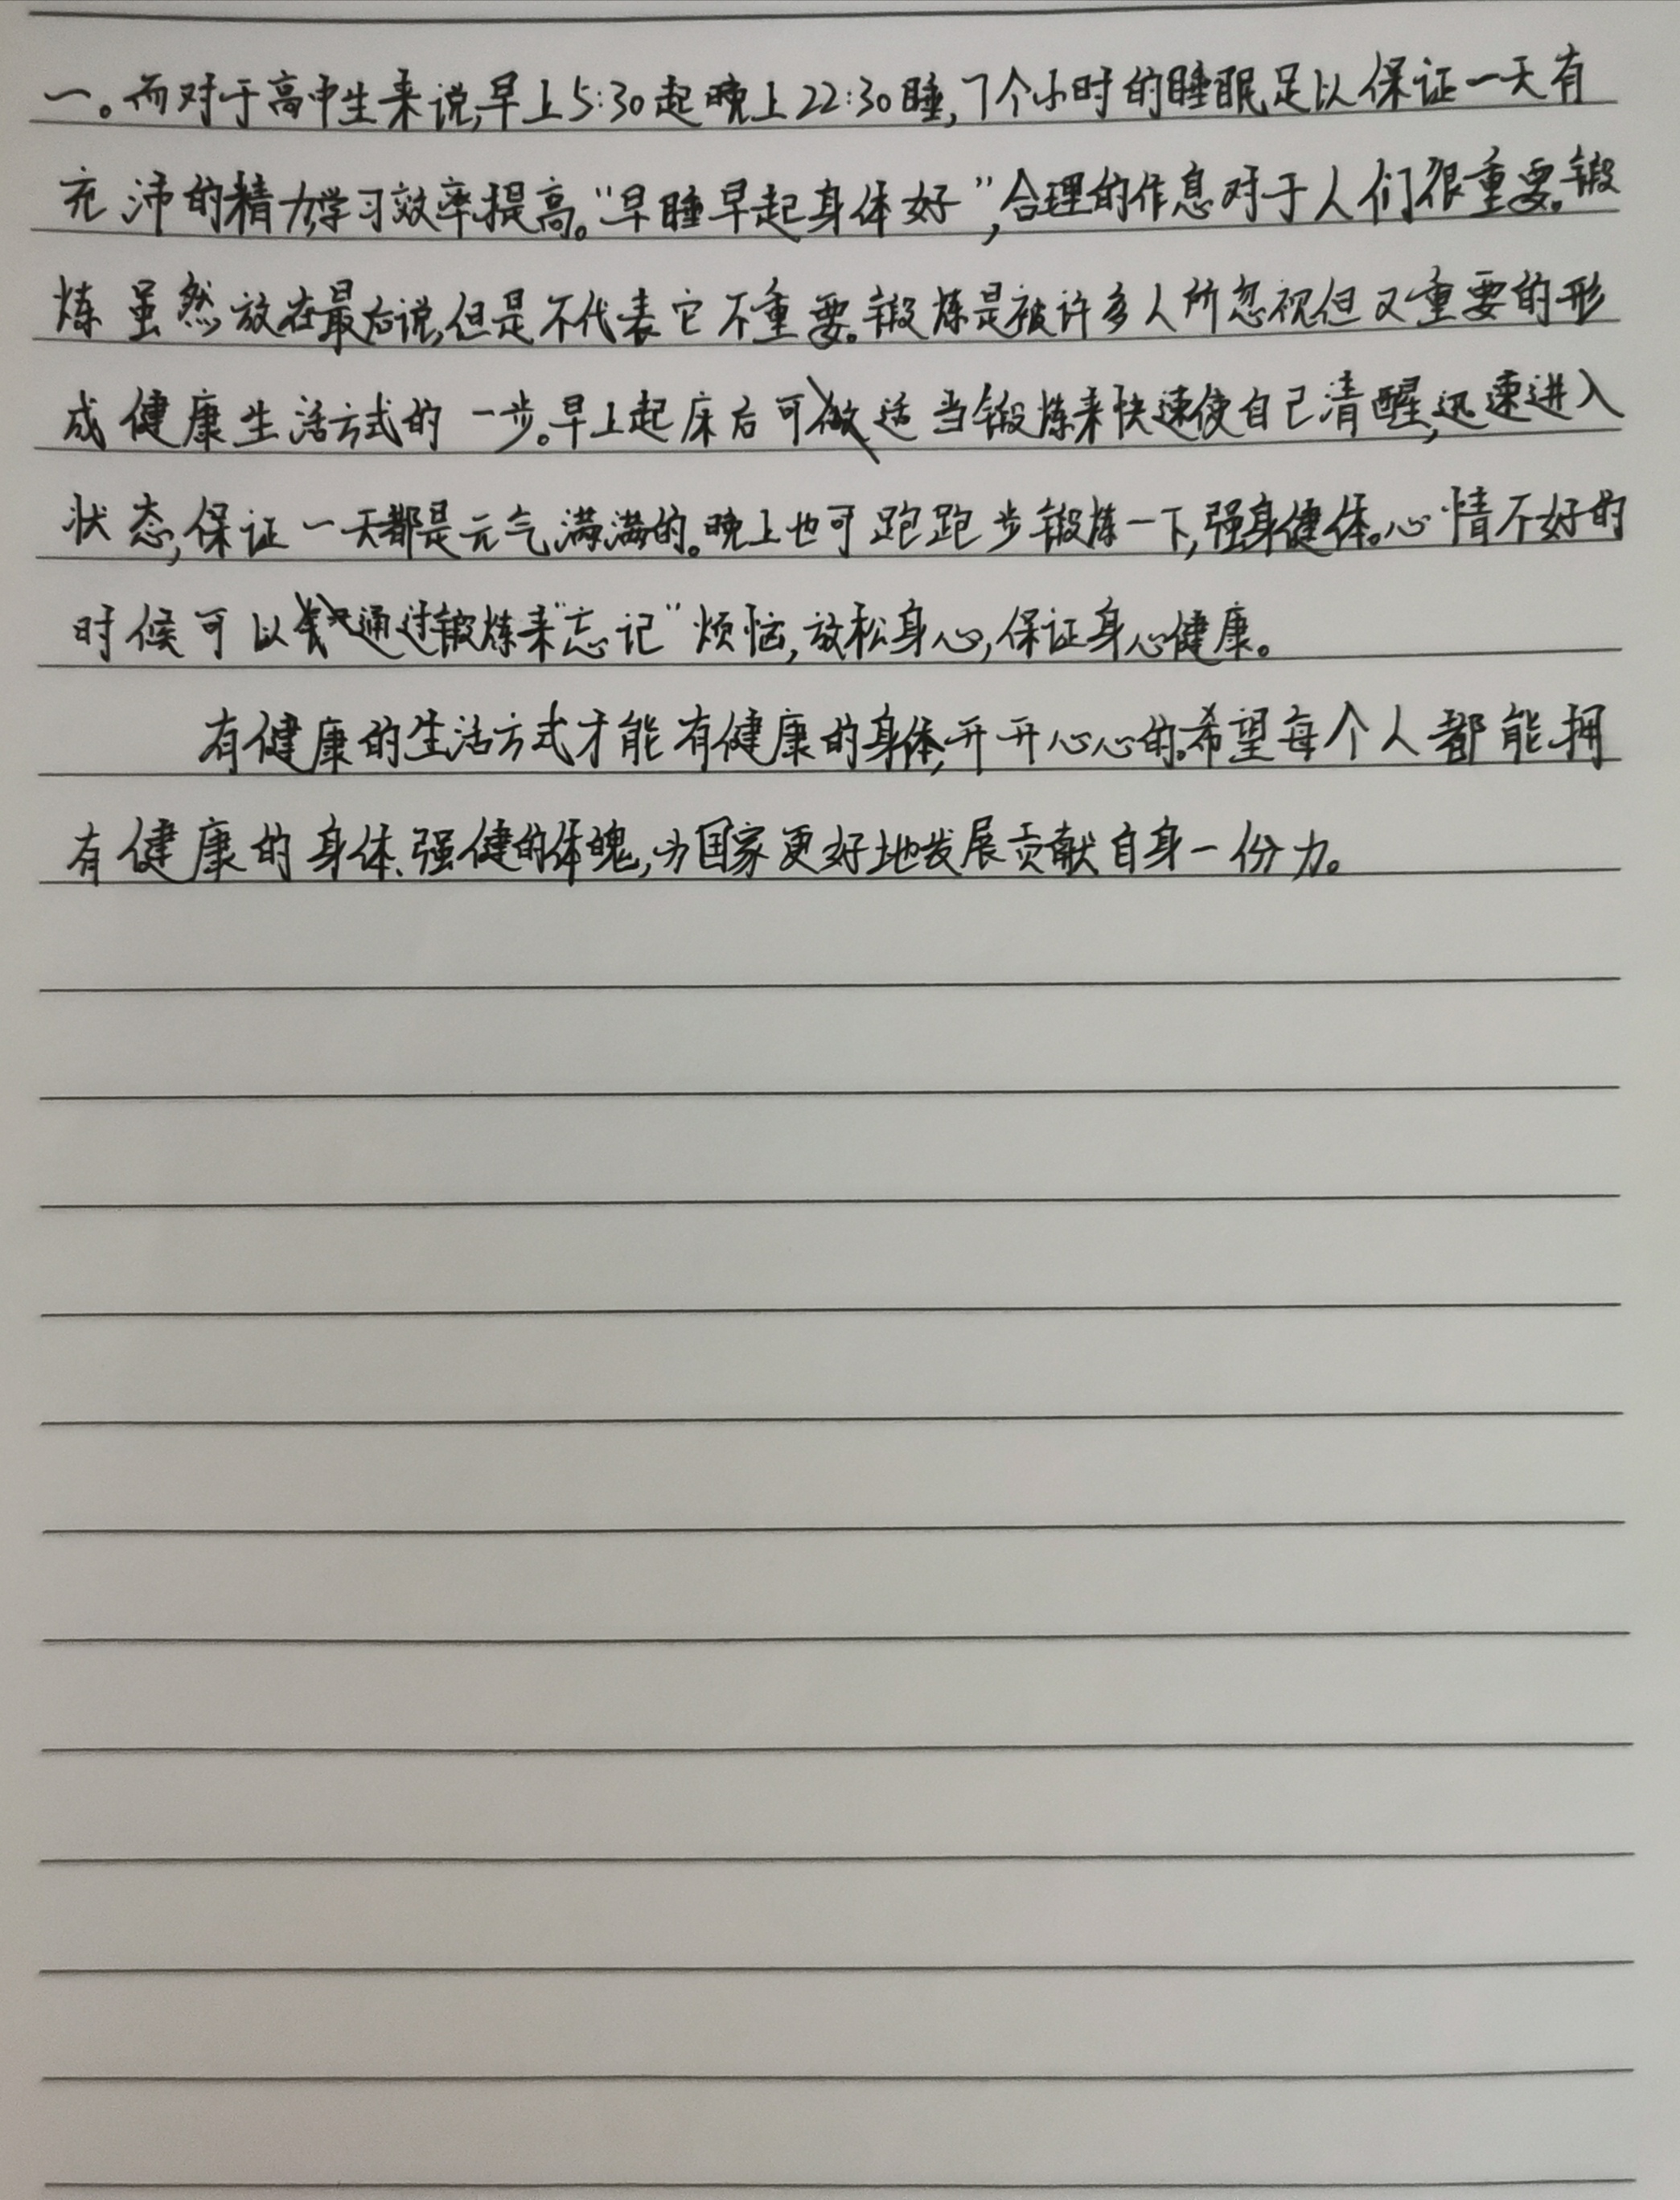 一。而对于高中生来说,早上5:30起晚上22:30睡,7个小时的睡眠足以保证一天有
充沛的精力,学习效率提高。“早睡早起身体好”,合理的作息对于人们很重要。锻
炼虽然放在最后说,但是不代表它不重要。锻炼是被许多人所忽视但又重要的形
成健康生活方式的一步。早上起床后可适当锻炼来快速使自己清醒,迅速进入
状态,保证一天都是元气满满的。晚上也可跑跑步锻炼一下,强身健体。心情不好的
时候可以通过锻炼来“忘记”烦恼,放松身心,保证身心健康。
有健康的生活方式才能有健康的身体,开开心心的。希望每个人都能拥
有健康的身体、强健的体魄,为国家更好地发展贡献自身一份力。